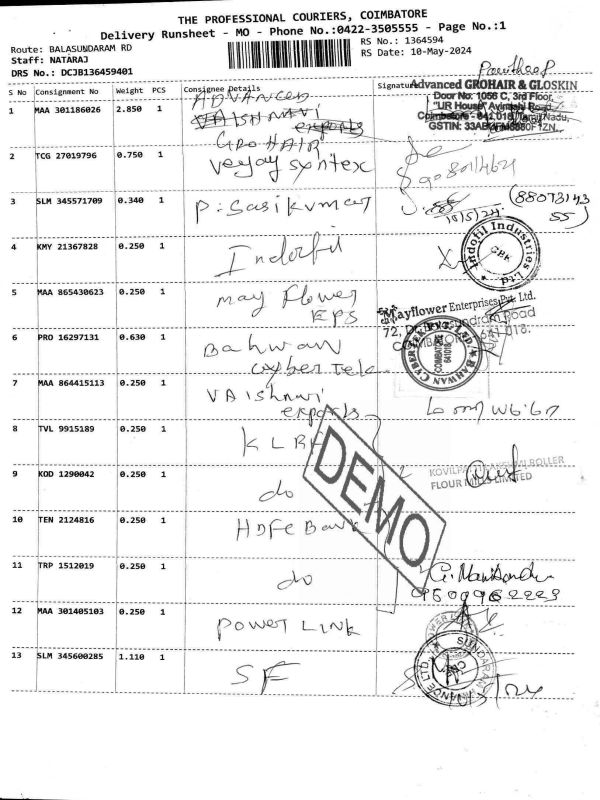 THE PROFESSIONAL COURIERS, COIMBATORE
Delivery Runsheet - MO - Phone No.:0422-3505555 - Page No.:1
Route: BALASUNDARAM RD
Staff: NATARAJ
DRS No.: DCJB136459401
RS No.: 1364594
RS Date: 10-May-2024
S No Consignment No Weight PCS Consignee Details Signature
1 MAA 301186026 2.850 1 ADVANCED
VAISHNAVI
exports
GROHAIR
Advanced GROHAIR & GLOSKIN
Door No: 1056 C, 3rd Floor,
"UR House" Avinashi Road
Coimbatore - 641 018, Tamil Nadu,
2 TCG 27019796 0.750 1 Veejay syntex
3 SLM 345571709 0.340 1 P. Sasikumar
10/5/24
(88073143
55)
4 KMY 21367828 0.250 1 Indofil
Indofil Industries Ltd
5 MAA 865430623 0.250 1 May Flower
EPS
Mayflower Enterprises Pvt. Ltd.
6 PRO 16297131 0.630 1 Bahwan
cyber Tek
BAHWAN CYBER TEK PVT. LTD.
COIMBATORE
641018
7 MAA 864415113 0.250 1 VAishnavi
exports
8 TVL 9915189 0.250 1 KLRF
9 KOD 1290042 0.250 1 do
FLOUR MILLS LIMITED
10 TEN 2124816 0.250 1 HDFC Bank
11 TRP 1512019 0.250 1 do
9500962223
12 MAA 301405103 0.250 1 POWER LINK
13 SLM 345600285 1.110 1 SF
DEMO